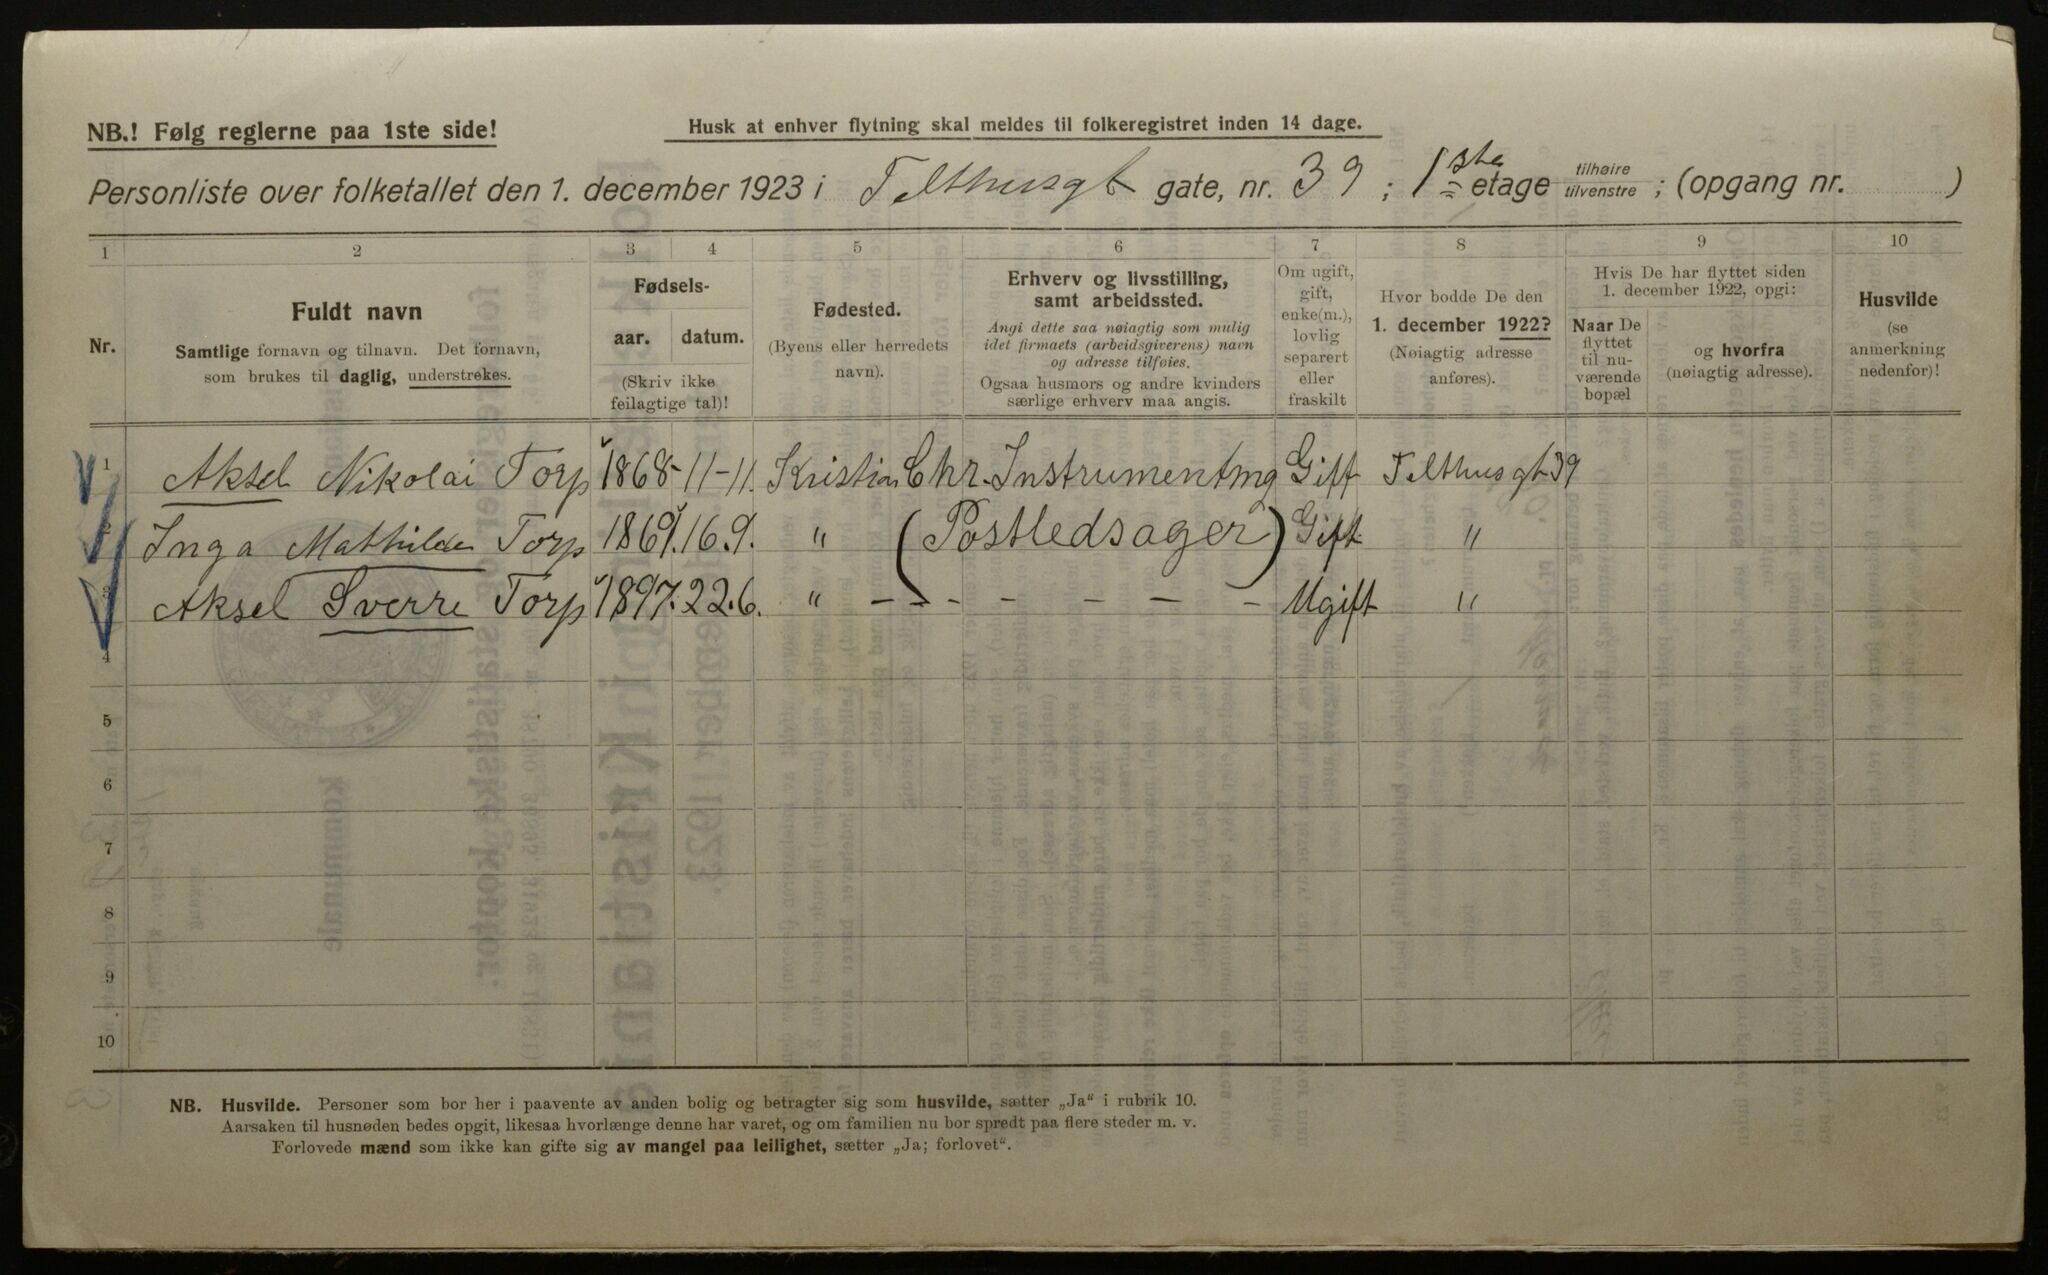 NB.! Følg reglerne paa 1ste side!
Husk at enhver flytning skal meldes til folkeregistret inden 14 dage.
Personliste over folketallet den 1. december 1923 i Telthusgt gate, nr. 39 ; 1ste etage tilhøire tilvenstre ; (opgang nr. )
1 2 3 4 5 6 7 8 9 10
Nr.
Fuldt navn
Samtlige fornavn og tilnavn. Det fornavn,
som brukes til daglig, understrekes.
Fødsels-
aar. datum.
(Skriv ikke
feilagtige tal)!
Fødested.
(Byens eller herredets
navn).
Erhverv og livsstilling,
samt arbeidssted.
Angi dette saa nøiagtig som mulig
idet firmaets (arbeidsgiverens) navn
og adresse tilføies.
Ogsaa husmors og andre kvinders
særlige erhverv maa angis.
Om ugift,
gift,
enke(m.),
lovlig
separert
eller
fraskilt
Hvor bodde De den
1. december 1922?
(Nøiagtig adresse
anføres).
Hvis De har flyttet siden
1. december 1922, opgi:
Naar De
flyttet
til nu-
værende
bopæl
og hvorfra
(nøiagtig adresse).
Husvilde
(se
anmerkning
nedenfor)!
1 Aksel Nikolai Torp 1868-11-11. Kristian Chr. Instrumentmg Gift Telthusgt 39
2 Inga Mathilde Torp 1869. 16.9. " (Postledsager) Gift "
3 Aksel Sverre Torp 1897. 22.6. " – – – – – – – Ugift "
4
5
6
7
8
9
10
NB. Husvilde. Personer som bor her i paavente av anden bolig og betragter sig som husvilde, sætter „Ja“ i rubrik 10.
Aarsaken til husnøden bedes opgit, likesaa hvorlænge denne har varet, og om familien nu bor spredt paa flere steder m. v.
Forlovede mænd som ikke kan gifte sig av mangel paa leilighet, sætter „Ja; forlovet“.